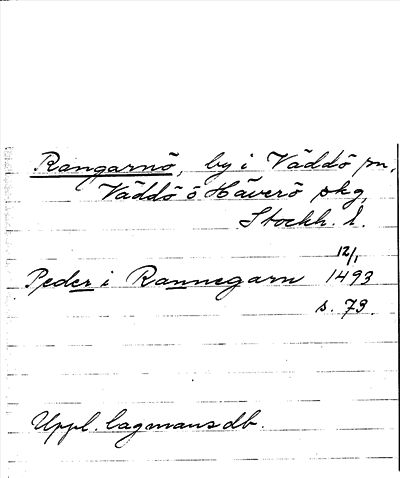 Rangarnö, by i Väddö sn,
Väddö o Häverö skg,
Stockh. l.
12/1
Peder i Rannegarn 1493
s. 73.
Uppl. lagmansdb.